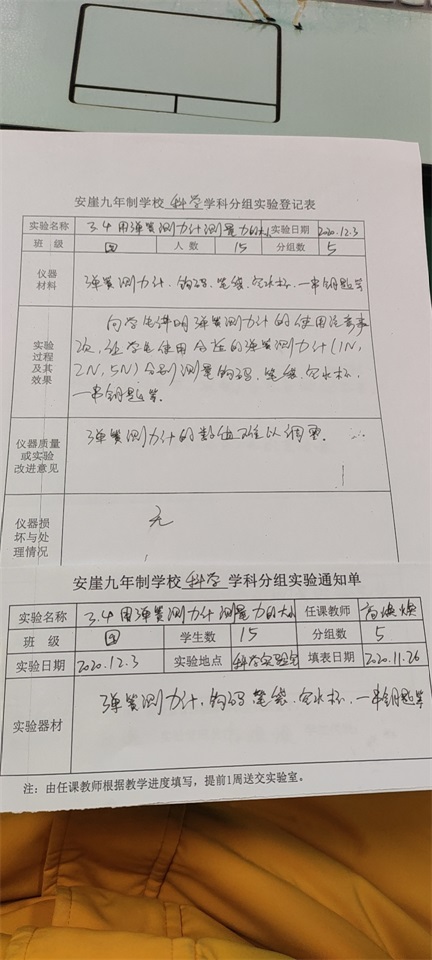 安崖九年制学校 科学 学科分组实验登记表
实验名称 3.4用弹簧测力计测量力的大小 实验日期 2020.12.3
班 级 四 人 数 15 分组数 5
仪器材料 弹簧测力计、钩码、笔袋、空水杯、一串钥匙等
实验过程及其效果 向学生讲明弹簧测力计的使用注意事
项,让学生使用合适的弹簧测力计(1N、
2N、5N)分别测量钩码、笔袋、空水杯、
一串钥匙等。
仪器质量或实验改进意见 弹簧测力计的数值难以调零。
仪器损坏与处理情况 无
安崖九年制学校 科学 学科分组实验通知单
实验名称 3.4用弹簧测力计测量力的大小 任课教师
班 级 四 学生数 15 分组数 5
实验日期 2020.12.3 实验地点 科学实验室 填表日期 2020.11.26
实验器材 弹簧测力计、钩码、笔袋、空水杯、一串钥匙等
注:由任课教师根据教学进度填写,提前1周送交实验室。